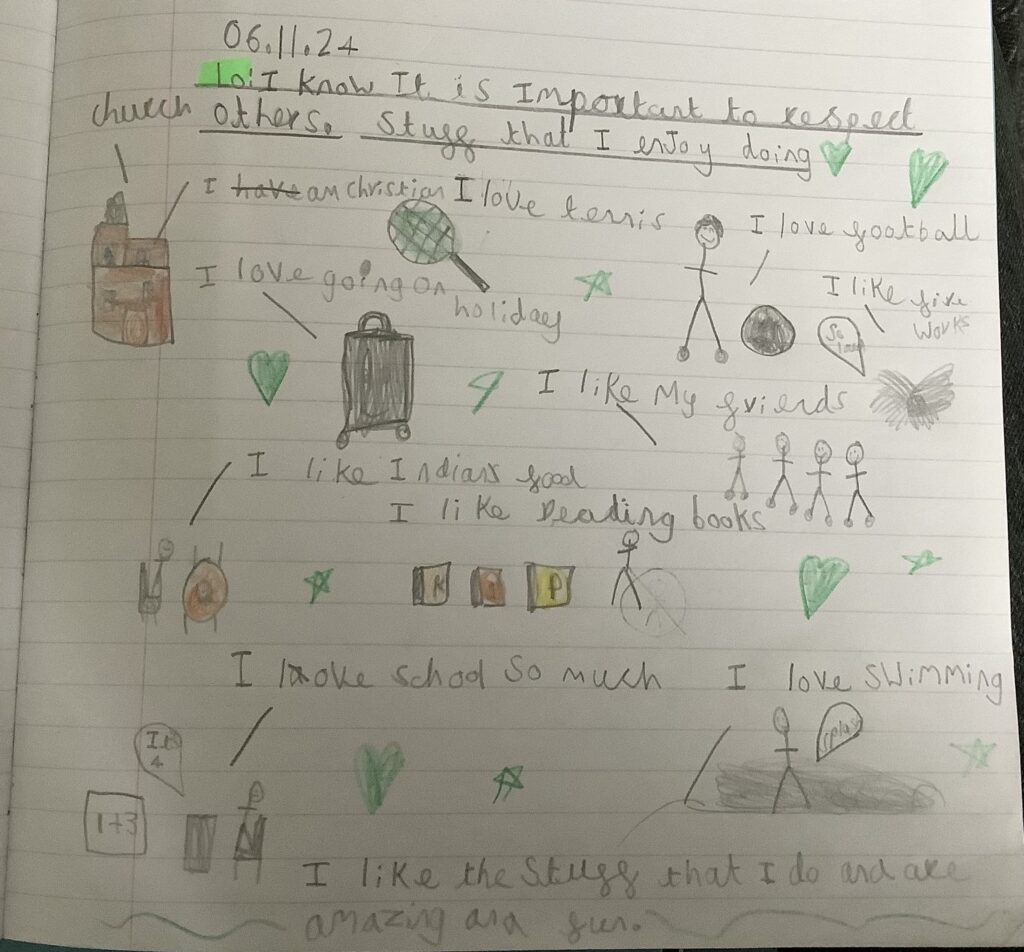 06.11.24
Lo: I know It is Important to respect
others. Stuff that I enjoy doing
church
I have am christian
I love tennis
I love football
I love going on
holiday
I like fire
works
So
I like My friends
I like Indian food
I like Reading books
K
P
I love school so much
I love swimming
splash
It's
4
1+3
I like the stuff that I do and are
amazing and fun.